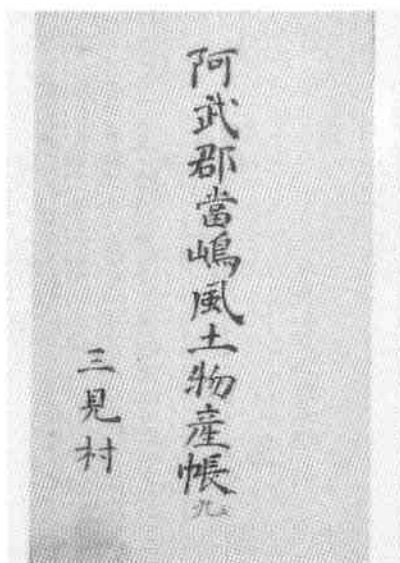 阿武郡當嶋風土物産帳 九
三見村